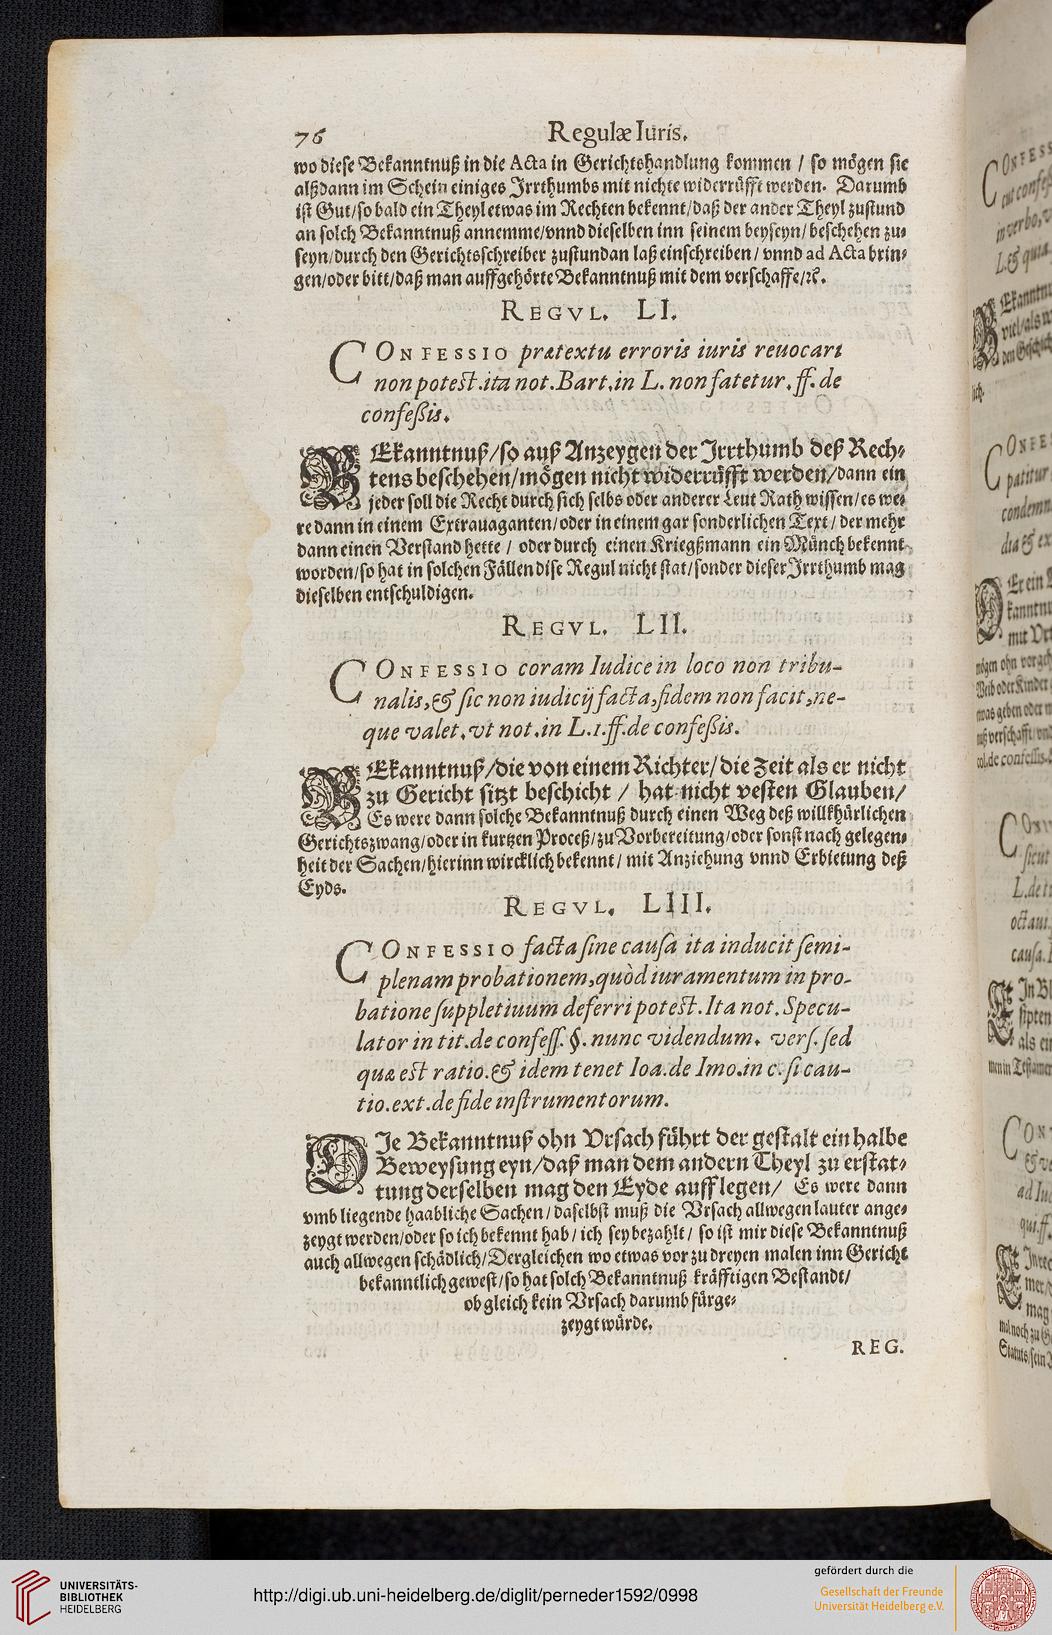 76 Regulæ Iuris.
wo diese Bekanntnuß in die Acta in Gerichtshandlung kommen / so mögen sie
alßdann im Schein einiges Irrthumbs mit nichte widerrüfft werden. Darumb
ist Gut/so bald ein Theyl etwas im Rechten bekennt/daß der ander Theyl zustund
an solch Bekanntnuß annemme/vnnd dieselben inn seinem beyseyn/beschehen zu-
seyn/durch den Gerichtsschreiber zustundan laß einschreiben/ vnnd ad Acta brin-
gen/oder bitt/daß man auffgehörte Bekanntnuß mit dem verschaffe/ꝛc.
REGVL. LI.
CONFESSIO prætextu erroris iuris reuocari
non potest.ita not.Bart.in L. non fatetur.ff.de
confeßis.
BEkanntnuß/so auß Anzeygen der Irrthumb deß Rech-
tens beschehen/mögen nicht widerrüfft werden/dann ein
jeder soll die Recht durch sich selbs oder anderer Leut Rath wissen/es we-
re dann in einem Extrauaganten/oder in einem gar sonderlichen Text/ der mehr
dann einen Verstand hette / oder durch einen Kriegßmann ein Münch bekennt
worden/so hat in solchen Fällen dise Regul nicht stat/sonder dieser Irrthumb mag
dieselben entschuldigen.
REGVL. LII.
CONFESSIO coram Iudice in loco non tribu-
nalis,& sic non iudicij facta,fidem non facit,ne-
que valet.vt not.in L.1.ff.de confeßis.
BEkanntnuß/die von einem Richter/die zeit als er nicht
zu Gericht sitzt beschicht / hat nicht vesten Glauben/
Es were dann solche Bekanntnuß durch einen Weg deß willkhürlichen
Gerichtszwang/oder in kurtzen Proceß/zu Vorbereitung/oder sonst nach gelegen-
heit der Sachen/hierinn wircklich bekennt/ mit Anziehung vnnd Erbietung deß
Eyds.
REGVL. LIII.
CONFESSIO facta sine causa ita inducit semi-
plenam probationem,quòd iuramentum in pro-
batione suppletiuum deferri potest.Ita not.Specu-
lator in tit.de confess.§.nunc videndum. vers.sed
quæ est ratio.& idem tenet Ioa.de Imo.in c.si cau-
tio.ext.de fide instrumentorum.
DJe Bekanntnuß ohn Vrsach führt der gestalt ein halbe
Beweysung eyn/daß man dem andern Theyl zu erstat-
tung derselben mag den Eyde aufflegen/ Es were dann
vmb liegende haabliche Sachen/daselbst muß die Vrsach allwegen lauter ange-
zeygt werden/oder so ich bekennt hab/ ich sey bezahlt/ so ist mir diese Bekanntnuß
auch allwegen schädlich/Dergleichen wo etwas vor zu dreyen malen inn Gericht
bekanntlich gewest/so hat solch Bekanntnuß kräfftigen Bestandt/
ob gleich kein Vrsach darumb fürge-
zeygt würde.
REG.
UNIVERSITÄTS-
BIBLIOTHEK
HEIDELBERG
http://digi.ub.uni-heidelberg.de/diglit/perneder1592/0998
gefördert durch die
Gesellschaft der Freunde
Universität Heidelberg e.V.